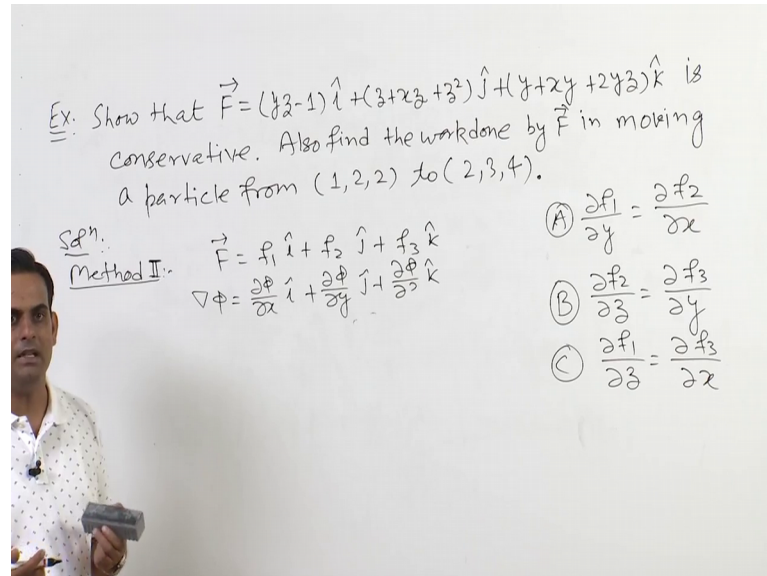 Ex: Show that F⃗ = (yz-1) î + (z+xz+z²) ĵ + (y+xy+2yz) k̂ is
conservative. Also find the workdone by F⃗ in moving
a particle from (1,2,2) to (2,3,4).
Solⁿ:
Method II:-
F⃗ = f₁ î + f₂ ĵ + f₃ k̂
∇Φ = ∂Φ/∂x î + ∂Φ/∂y ĵ + ∂Φ/∂z k̂
(A) ∂f₁/∂y = ∂f₂/∂x
(B) ∂f₂/∂z = ∂f₃/∂y
(C) ∂f₁/∂z = ∂f₃/∂x